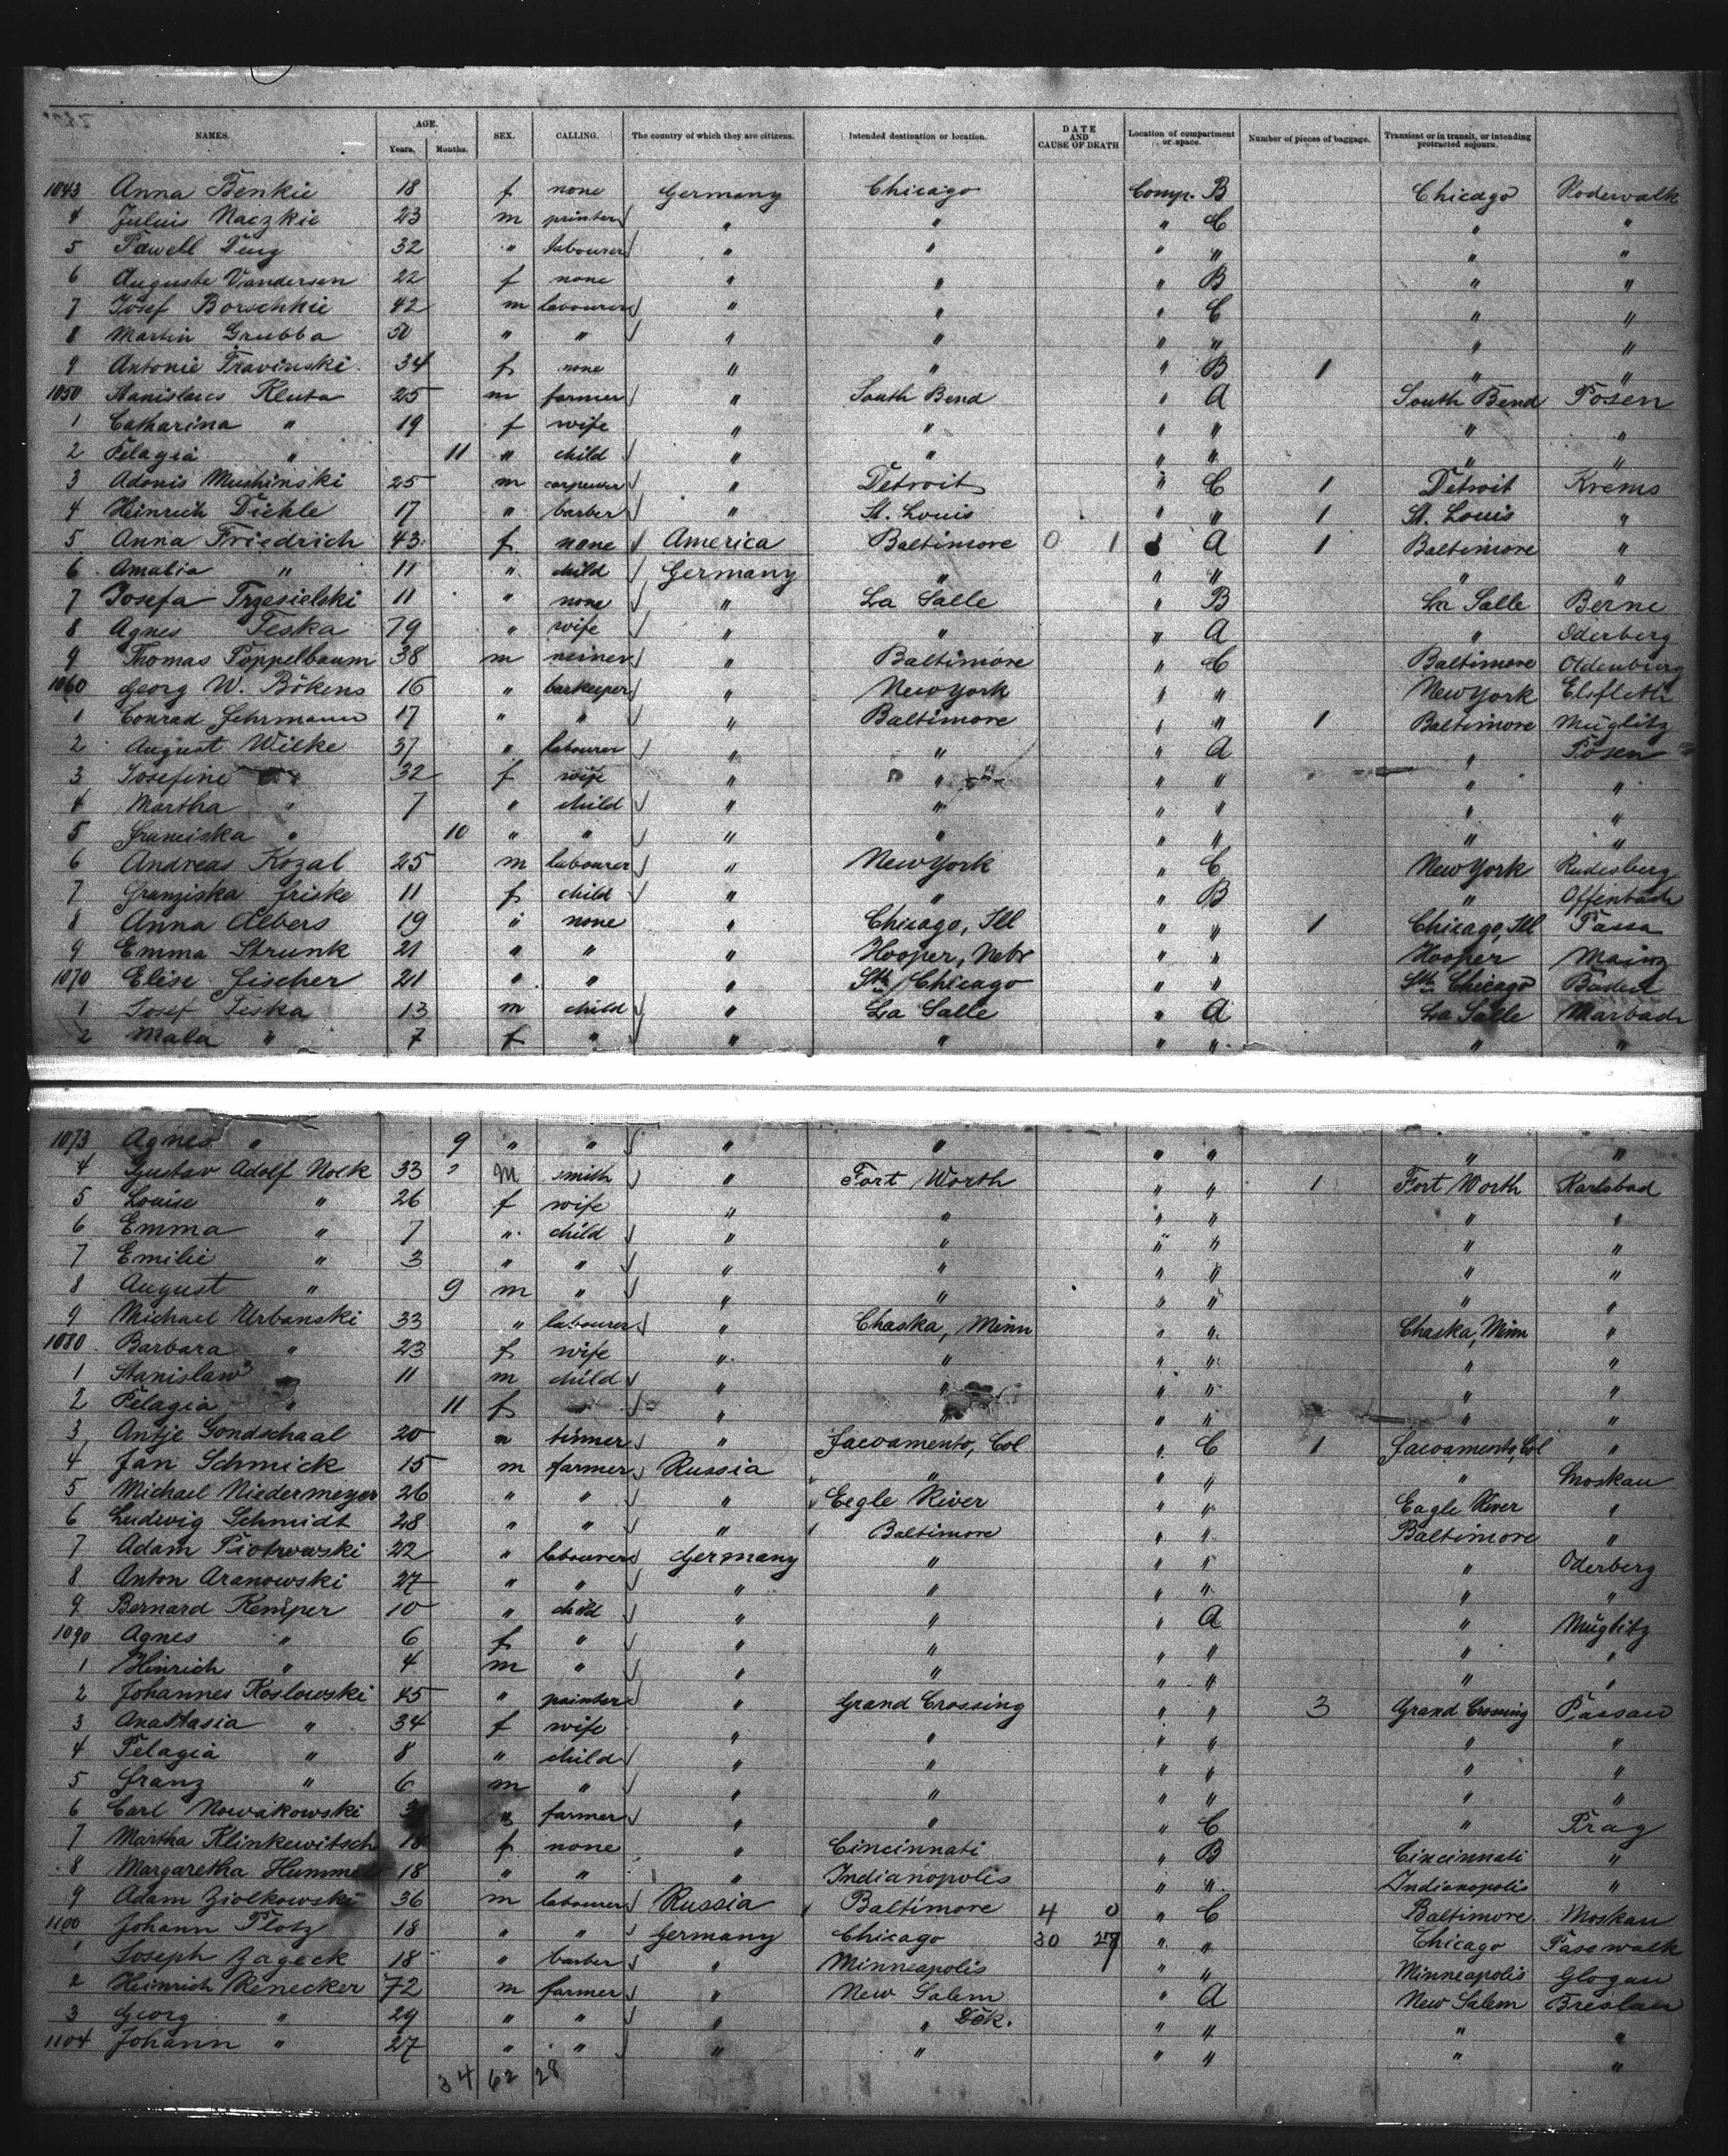 NAMES. AGE. Years. Months. SEX. CALLING. The country of which they are citizens. Intended destination or location. DATE AND CAUSE OF DEATH Location of compartment or space. Number of pieces of baggage. Transient or in transit, or intending protracted sojourn.
1043 Anna Benkie 18 f none Germany Chicago Comp. B Chicago
4 Julius Naczkie 23 m printer " " " C " "
5 Pawell 32 " labourer " " " " " "
6 Auguste Vandersen 22 f none " " " B " "
7 Josef Borschkie 42 m labourer " " " C " "
8 Martin Grubba 50 " " " " " " " "
9 Antonie Travinski 34 f none " " " B 1 " "
1050 Stanislaus Kluta 25 m farmer " South Bend " A South Bend Posen
1 Catharina " 19 f wife " " " " " "
2 Pelagia " 11 " child " " " " " "
3 Adonis Mushinski 25 m carpenter " Detroit " C 1 Detroit Krems
4 Heinrich Diehle 17 " barber " St. Louis " " 1 St. Louis "
5 Anna Friedrich 43 f none America Baltimore 0 1 A 1 Baltimore "
6 Amalia " 11 " child Germany " " " " "
7 Josefa Trzesielski 11 " none " La Salle " B La Salle Berne
8 Agnes Teska 79 " wife " " " A " Oderberg
9 Thomas Poppelbaum 38 m meiner " Baltimore " C Baltimore Oldenburg
1060 Georg W. Bökens 16 " barkeeper " New York " " New York Elsfleth
1 Conrad Fehrmann 17 " " " Baltimore " " 1 Baltimore Müglitz
2 August Wilke 37 " labourer " " " A " Posen
3 Josefine 32 f wife " " " " " "
4 Martha " 7 " child " " " " " "
5 Franciska " 10 " " " " " " " "
6 Andreas Kozal 25 m labourer " New York " C New York Rudesberg
7 Franziska Friske 11 f child " " " B " Offenbach
8 Anna Albers 19 " none " Chicago, Ill " " 1 Chicago, Ill Passa
9 Emma Strunk 21 " " " Hooper, Nebr " " Hooper Mainz
1070 Elise Fischer 21 " " " Sth Chicago " " Sth Chicago
1 Josef Teska 13 m child " La Salle " A La Salle Marbach
2 Mala " 7 f " " " " " " "
1073 Agnes " 9 " " " " " " " "
4 Gustav Adolf Nock 33 m smith " Fort Worth " " 1 Fort Worth Karlsbad
5 Louise " 26 f wife " " " " " "
6 Emma " 7 " child " " " " " "
7 Emilie " 3 " " " " " " " "
8 August " 9 m " " " " " " "
9 Michael Urbanski 33 " labourer " Chaska, Minn " " Chaska, Minn "
1080 Barbara " 23 f wife " " " " " "
1 Stanislaw " 11 m child " " " " " "
2 Pelagia " 11 f " " " " " "
3 Antje Gondschaal 20 " tinner " Sacramento, Col " C 1 Sacramento, Col "
4 Jan Schmick 15 m farmer Russia " " " " Moskau
5 Michael Niedermeyer 26 " " " Eegle River " " Eagle River "
6 Ludwig Schmidt 28 " " " Baltimore " " Baltimore "
7 Adam Piotrowski 22 " labourer Germany " " " " Oderberg
8 Anton Aranowski 27 " " " " " " " "
9 Bernard Kemper 10 " child " " " A " Müglitz
1090 Agnes " 6 f " " " " " " "
1 Hinrich " 4 m " " " " " " "
2 Johannes Koslowski 45 " painter " Grand Crossing " " 3 Grand Crossing Passau
3 Anastasia " 34 f wife " " " " " "
4 Pelagia " 8 " child " " " " " "
5 Franz " 6 m " " " " " " "
6 Carl Nowakowski " farmer " " " C " Prag
7 Martha Klinkewitsch 18 f none " Cincinnati " B Cincinnati "
8 Margaretha Hummel 18 " " " Indianopolis " " Indianopolis "
9 Adam Ziolkowski 36 m labourer Russia Baltimore 4 0 " C Baltimore Moskau
1100 Johann Plotz 18 " " Germany Chicago 30 27 " " Chicago Pasewalk
1 Joseph Zageck 18 " barber " Minneapolis " " Minneapolis Glogau
2 Heinrich Renecker 72 m farmer " New Salem " A New Salem Breslau
3 Georg " 29 " " " " Dak. " " " "
1104 Johann " 27 " " " " " " " "
34 62 28